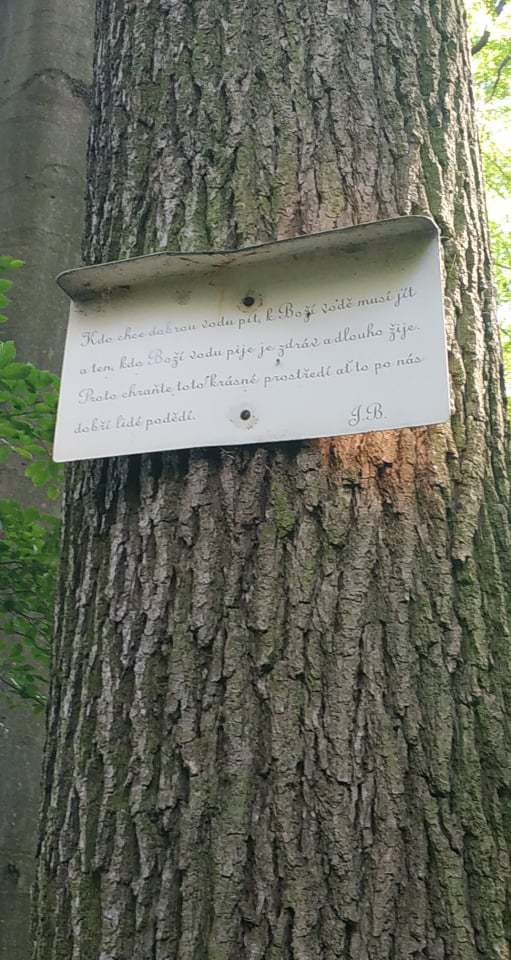 Kdo chce dobrou vodu pít, k Boží vodě musí jít
a ten, kdo Boží vodu pije je zdráv a dlouho žije.
Proto chraňte toto krásné prostředí ať to po nás
dobří lidé podědí. J.B.